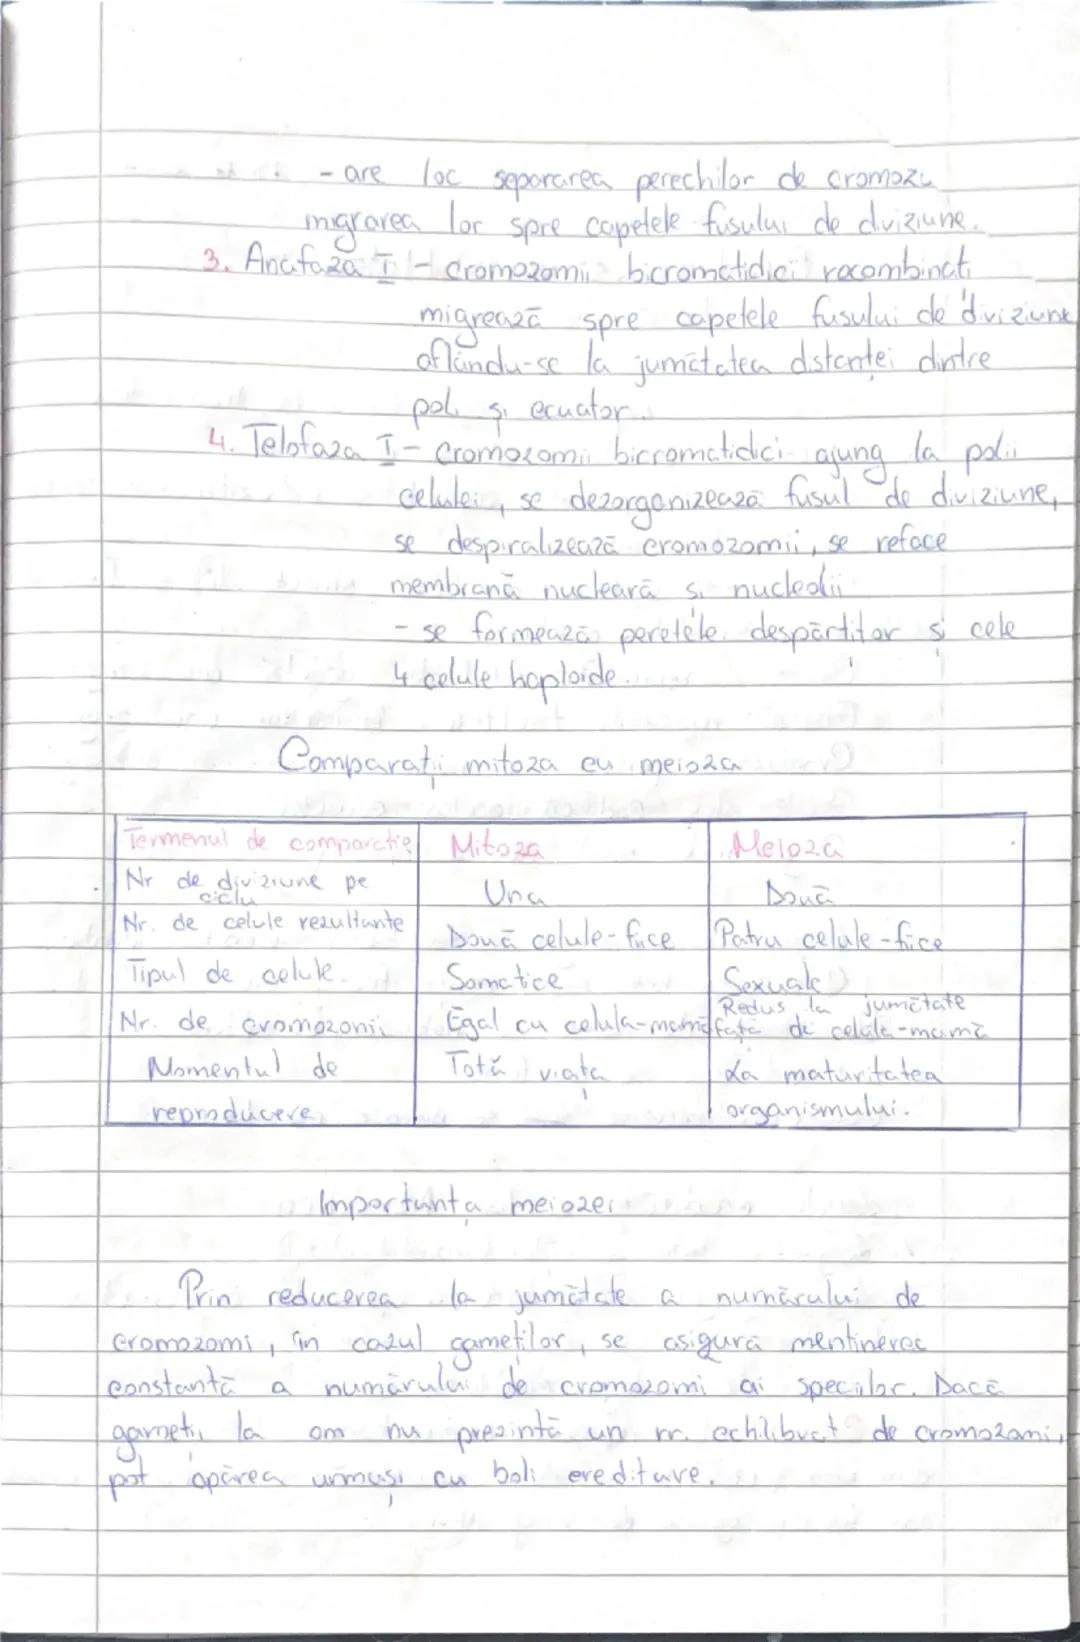 - are loc separarea perechilor de cromozo
migrarea lor spre capetele fusului de diviziune.
3. Anafaza I - cromozomii bicromatidici recombinati
migrează spre capetele fusului de diviziune
aflându-se la jumătatea distanței dintre
poli și ecuator.
4. Telofaza I - cromozomii bicromatidici ajung la polii
celulei, se dezorganizează fusul de diviziune,
se despiralizează cromozomii, se reface
membrană nucleară si nucleolii
- se formează peretele despărtitor și cele
4 celule haploide.
Comparații mitoza cu meioza
Termenul de comparatie Mitoza Meioza
Nr de diviziune pe ciclu Una Două
Nr. de celule rezultante Două celule-fiice Patru celule-fiice
Tipul de celule Somatice Sexuale
Nr. de cromozomii Egal cu celula-mamă Redus la jumătate față de celula-mamă
Momentul de reproducere Totă viața La maturitatea organismului.
Importanta meiozei
Prin reducerea la jumătate a numărului de
cromozomi, în cazul gameților, se asigură mentinerea
constantă a numărului de cromozomi ai speciilor. Dacă
gameții la om nu prezintă un nr. echilibrat de cromozomi,
pot apărea urmași cu boli ereditare.